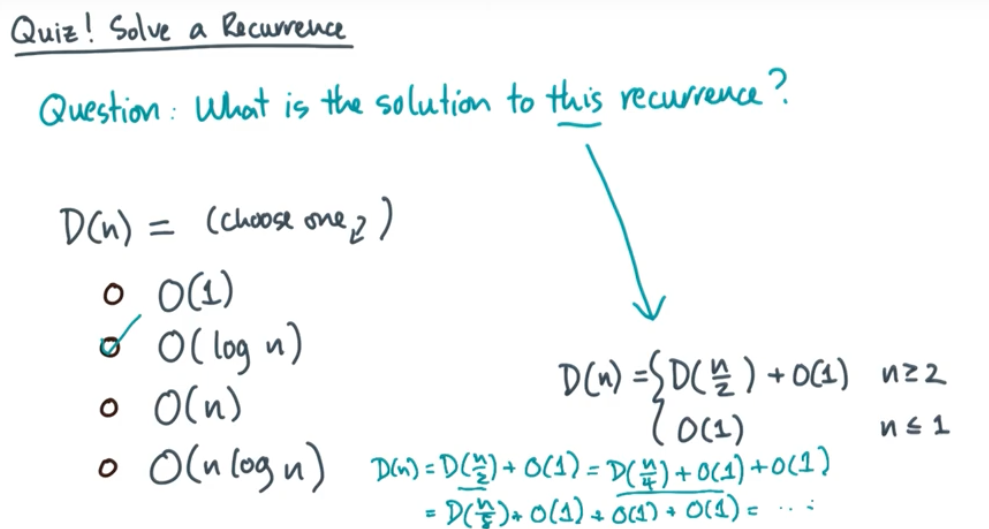 Quiz! Solve a Recurrence
Question: What is the solution to this recurrence?
D(n) = (choose one)
O(1)
O(log n)
O(n)
O(n log n)
D(n) = { D(n/2) + O(1) n≥2
O(1) n≤1
D(n) = D(n/2) + O(1) = D(n/4) + O(1) + O(1)
= D(n/8) + O(1) + O(1) + O(1) = ...